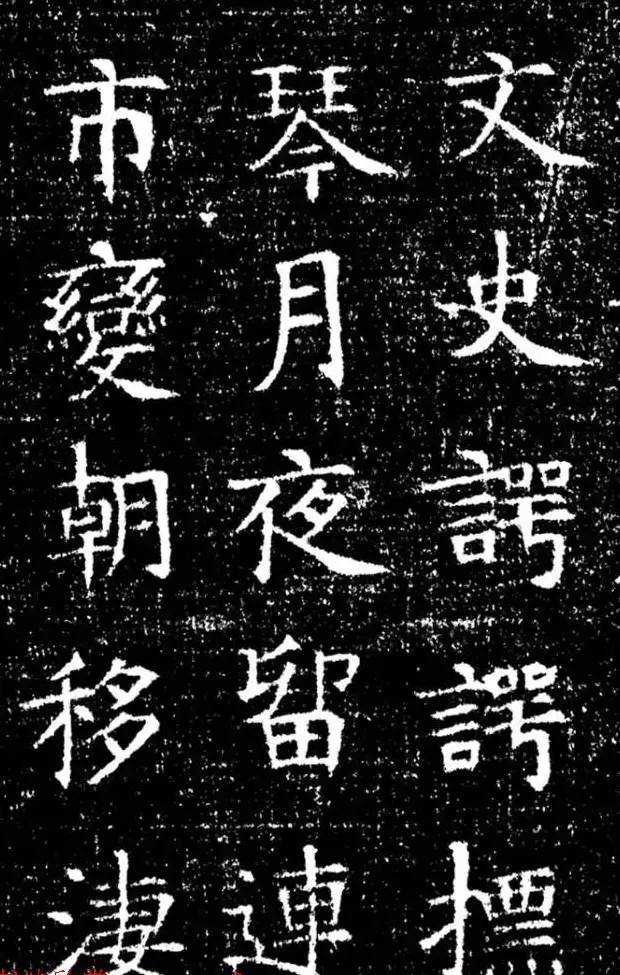 文史諤諤標
琴月夜留連
市變朝移淒